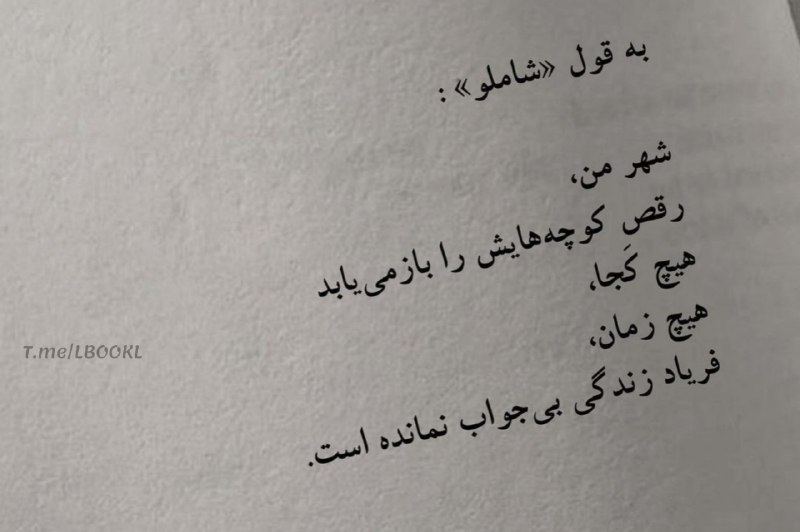 به قول «شاملو»:
شهر من،
رقصِ کوچه‌هایش را بازمی‌یابد
هیچ کَجا،
هیچ زمان،
فریاد زندگی بی‌جواب نمانده است.
T.me/LBOOKL